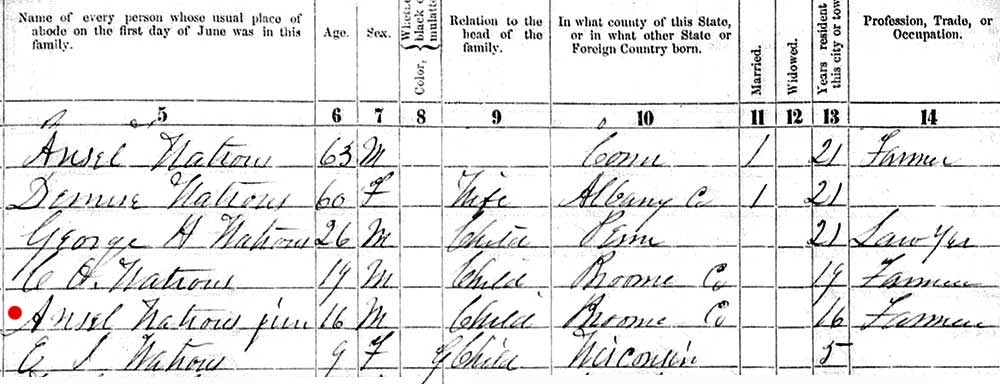 Name of every person whose usual place of abode on the first day of June was in this family. Age. Sex. Color, Whether black or mulatto Relation to the head of the family. In what county of this State, or in what other State or Foreign Country born. Married. Widowed. Years resident this city or tow Profession, Trade, or Occupation.
5 6 7 8 9 10 11 12 13 14
Ansel Natrous 63 M Conn 1 21 Farmer
Natrous 60 F Wife Albany Co 1 21
George H Natrous 26 M Child Penn 21 Lawyer
C O. Natrous 19 M Child Broome Co 19 Farmer
Ansel Natrous jun 16 M Child Broome Co 16 Farmer
E S Natrous 9 F GChild Wisconsin 5